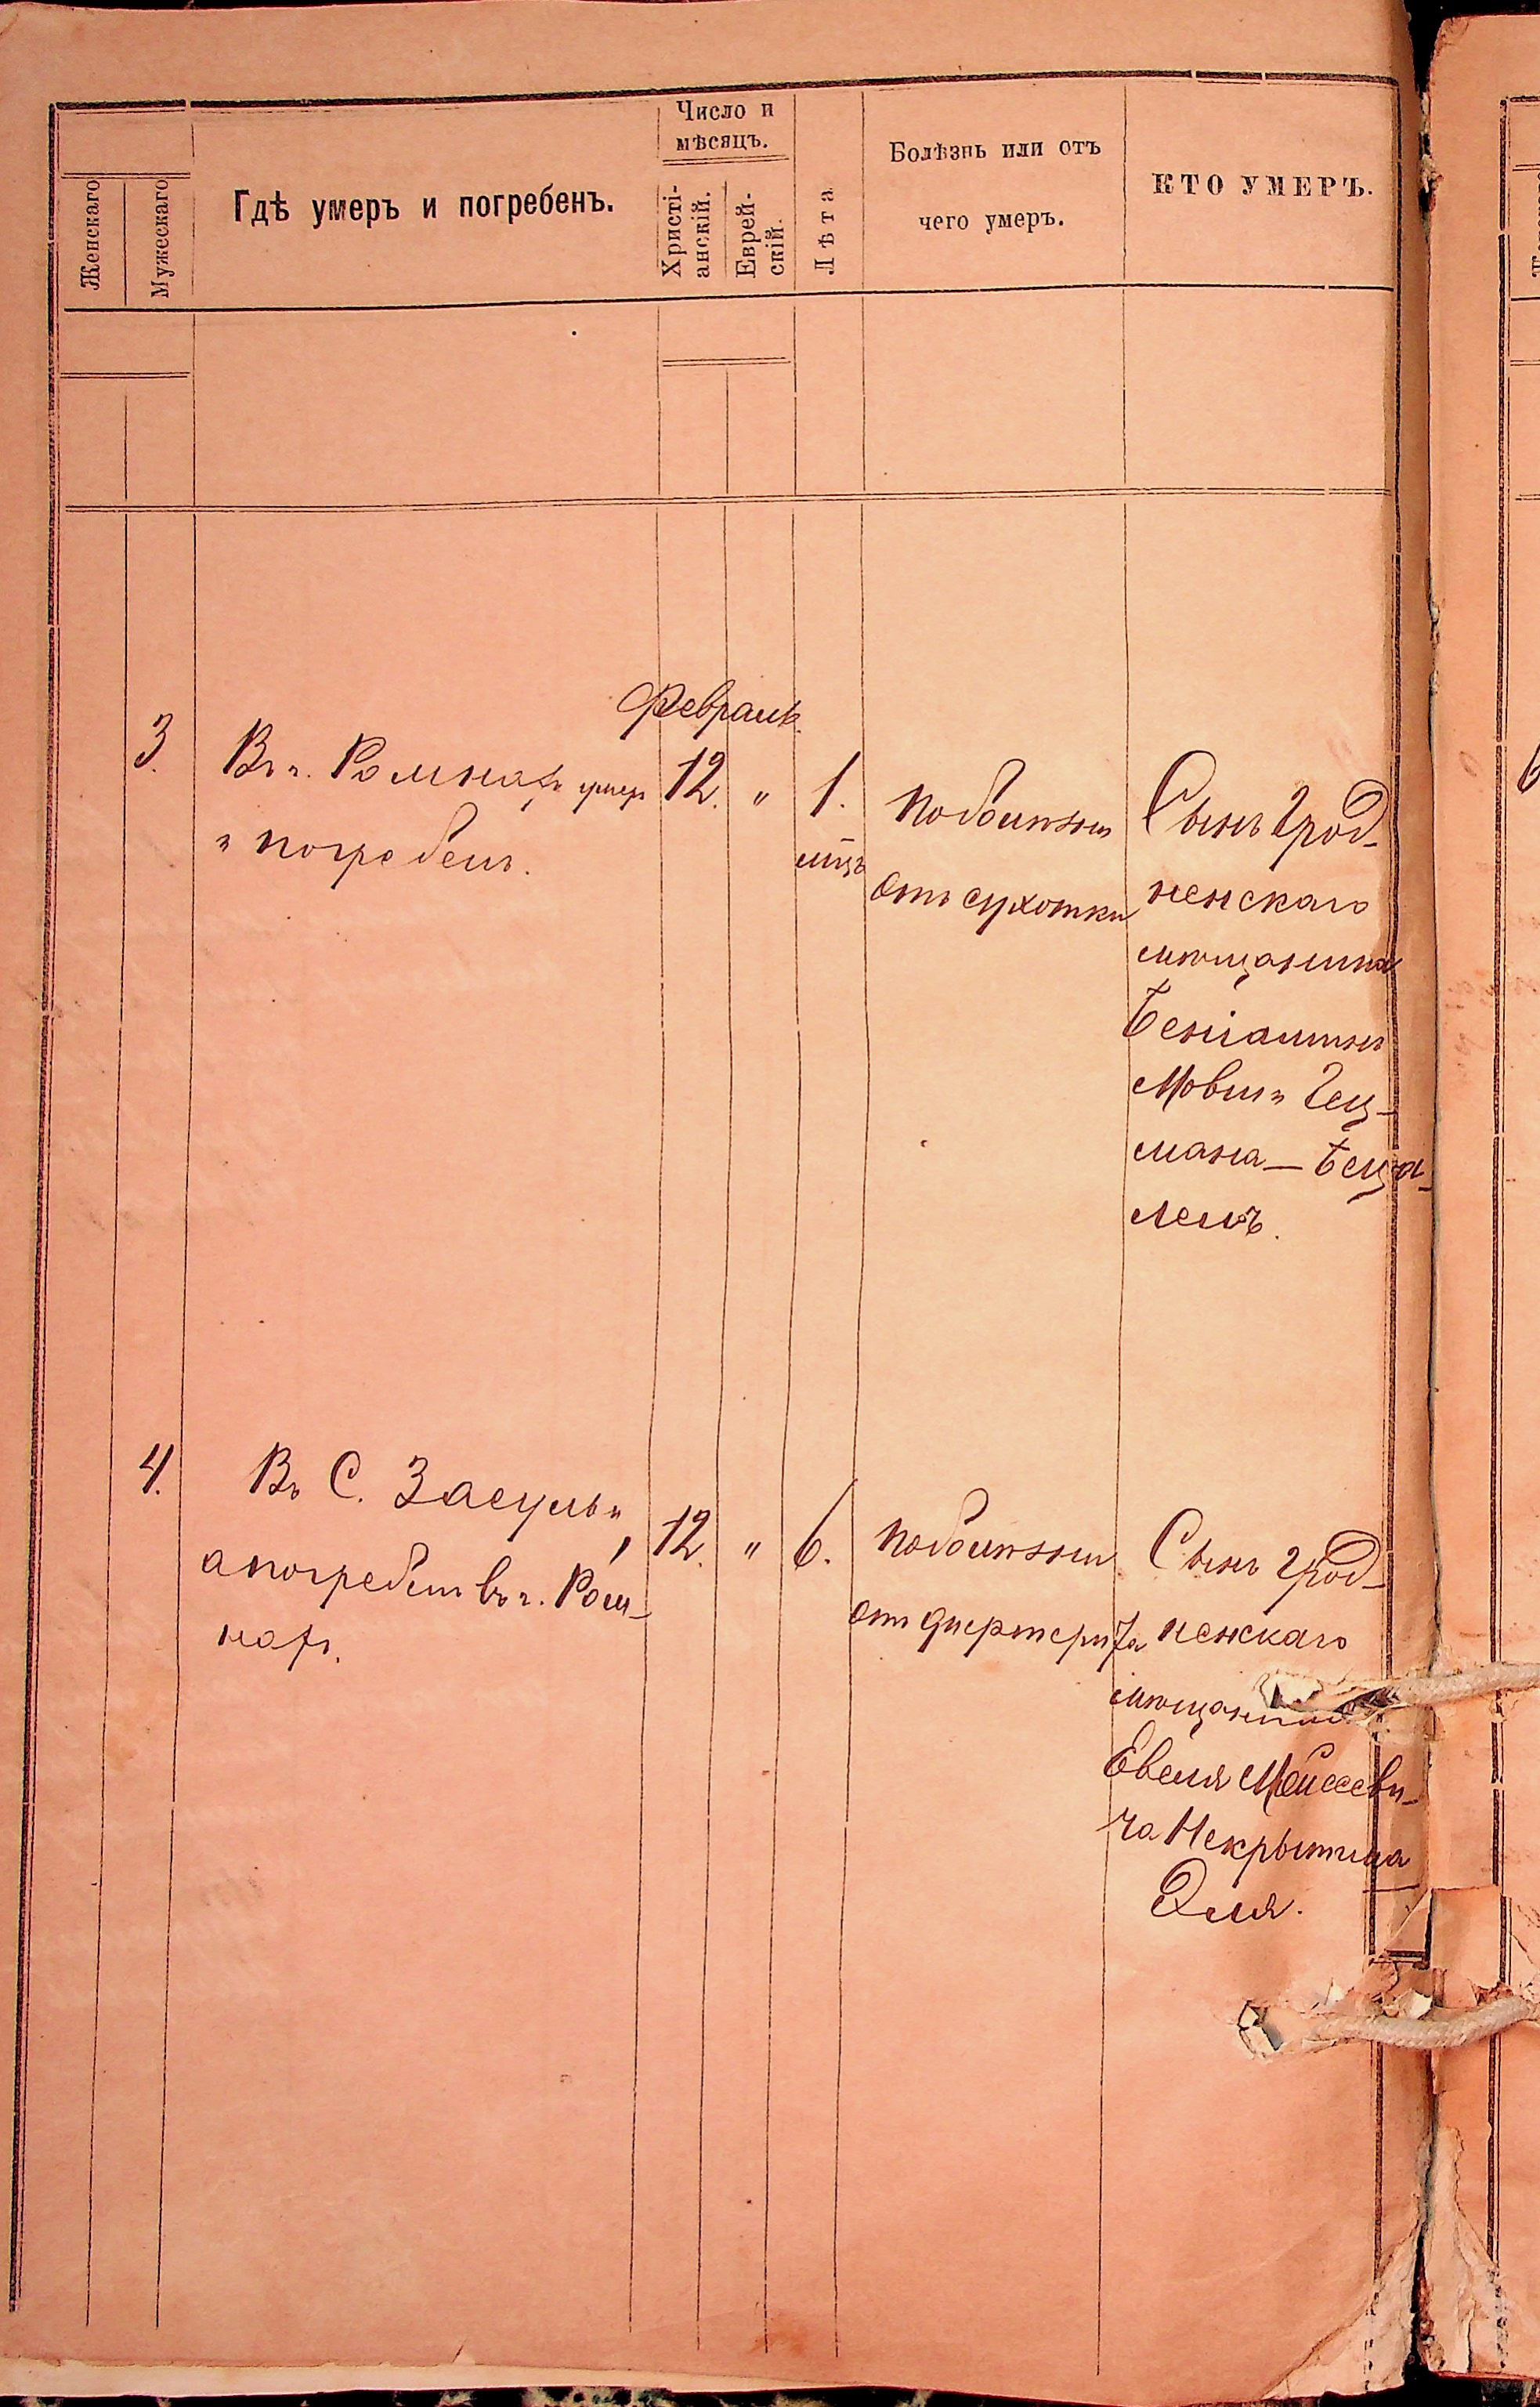 Женскаго
Мужескаго
Гдѣ умеръ и погребенъ.
Число и
мѣсяцъ.
Христі-
анскій.
Еврей-
скій.
Лѣта
Болѣзнь или отъ
чего умеръ.
КТО УМЕРЪ.
Февраль
3.
Въ г. Ромнахъ умеръ
и погребенъ.
12.
"
1.
мцъ
по болѣзни
отъ сухотки
Сынъ Грод-
ненскаго
мѣщанина
Беніаминъ
Мовши Гец-
мана - Беца-
лелъ.
4.
Въ С. Засульи,
а погребенъ въ г. Ром-
нахъ.
12.
"
6.
по болѣзни
отъ дифтерита
Сынъ Грод-
ненскаго
мѣщанина
Евеля Мойсееви-
ча Некрытина
Эля.